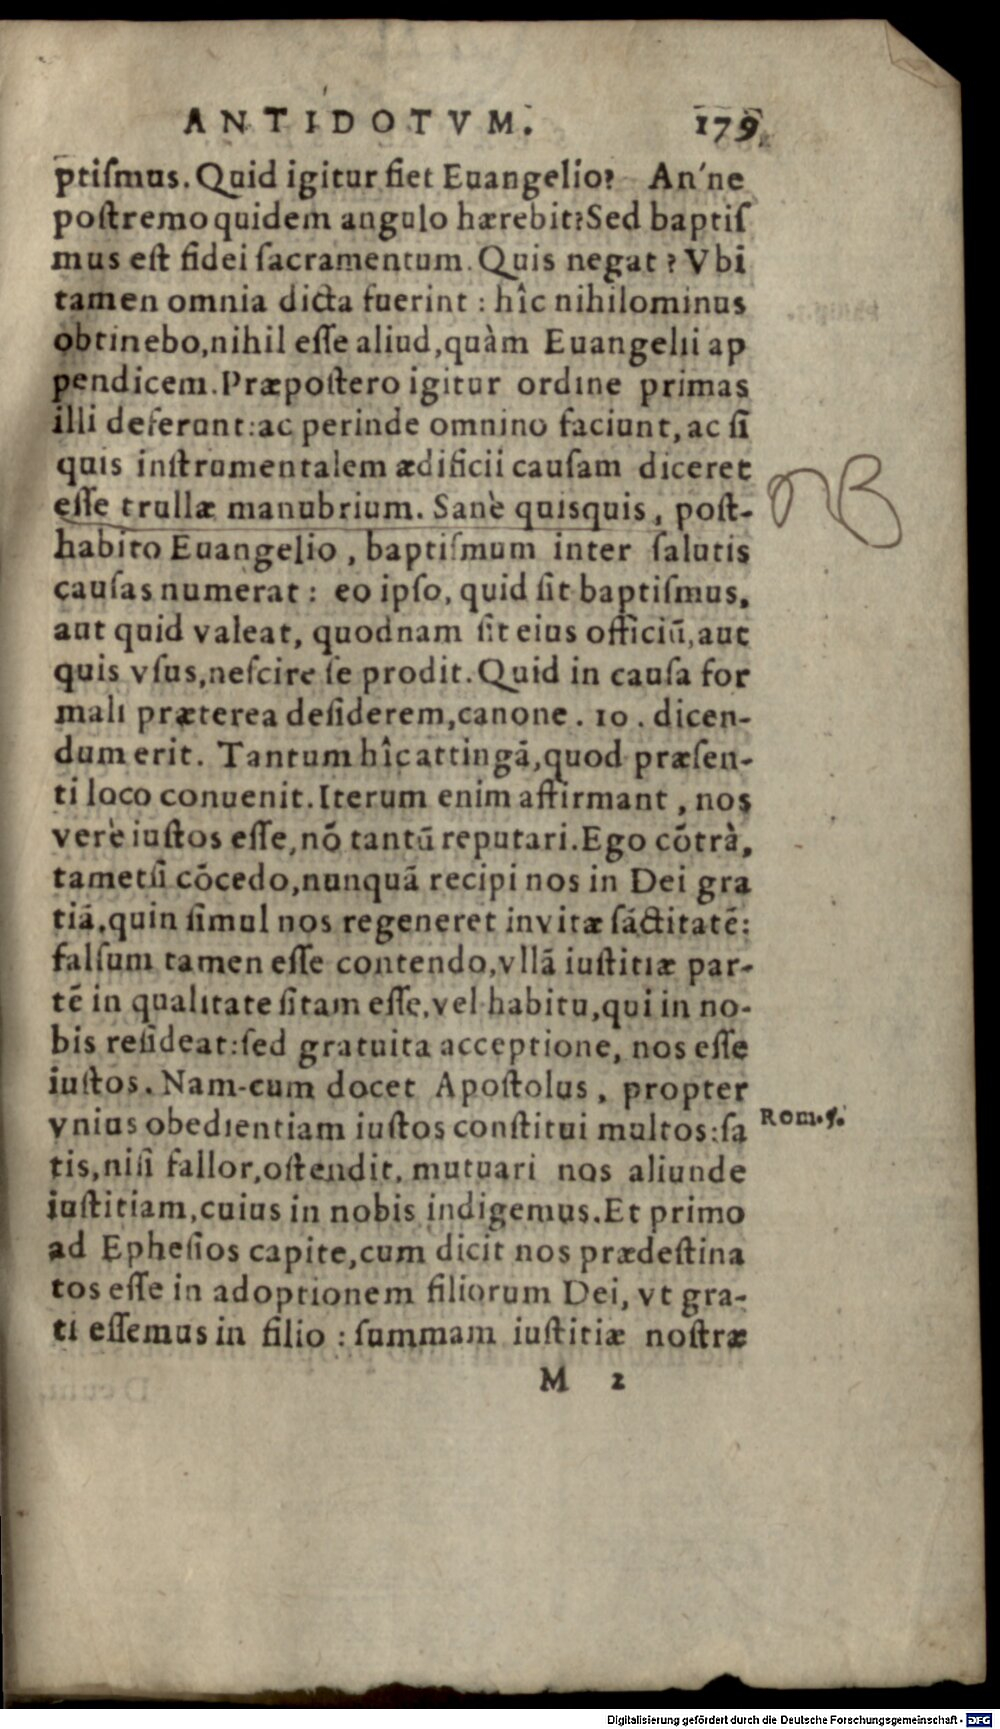 ANTIDOTVM. 179
ptiſmus. Quid igitur fiet Euangelio? An'ne
poſtremo quidem angulo hærebit? Sed baptiſ
mus eſt fidei ſacramentum. Quis negat? Vbi
tamen omnia dicta fuerint: hîc nihilominus
obtinebo, nihil eſſe aliud, quàm Euangelii ap
pendicem. Præpoſtero igitur ordine primas
illi deferunt: ac perinde omnino faciunt, ac ſi
quis inſtrumentalem ædificii cauſam diceret
eſſe trullæ manubrium. Sanè quisquis, poſt-
NB
habito Euangelio, baptiſmum inter ſalutis
cauſas numerat: eo ipſo, quid ſit baptiſmus,
aut quid valeat, quodnam ſit eius officiū, aut
quis vſus, neſcire ſe prodit. Quid in cauſa for
mali præterea deſiderem, canone. 10. dicen-
dum erit. Tantum hîc attingā, quod præſen-
ti loco conuenit. Iterum enim affirmant, nos
verè iuſtos eſſe, nō tantū reputari. Ego cōtrà,
tametſi cōcedo, nunquā recipi nos in Dei gra
tiā, quin ſimul nos regeneret in vitæ ſāctitatē:
falſum tamen eſſe contendo, vllā iuſtitiæ par-
tē in qualitate ſitam eſſe, vel habitu, qui in no-
bis reſideat: ſed gratuita acceptione, nos eſſe
iuſtos. Nam-cum docet Apoſtolus, propter
vnius obedientiam iuſtos conſtitui multos: ſa
Rom. 5.
tis, niſi fallor, oſtendit, mutuari nos aliunde
iuſtitiam, cuius in nobis indigemus. Et primo
ad Epheſios capite, cum dicit nos prædeſtina
tos eſſe in adoptionem filiorum Dei, vt gra-
ti eſſemus in filio: ſummam iuſtitiæ noſtræ
M 2
Digitalisierung gefördert durch die Deutsche Forschungsgemeinschaft - DFG